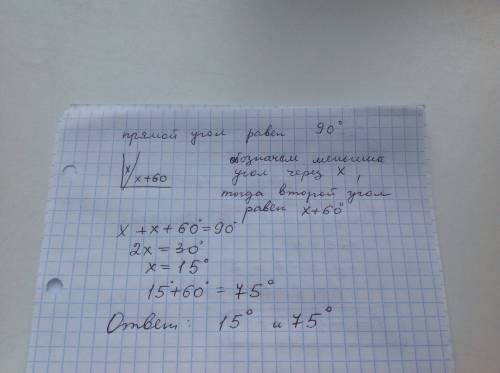 прямой угол равен 90°
обозначем меньший
угол через x,
x
x+60
тогда второй угол
равен x+60°
x+x+60°=90°
2x=30°
x=15°
15°+60°=75°
Ответ: 15° и 75°